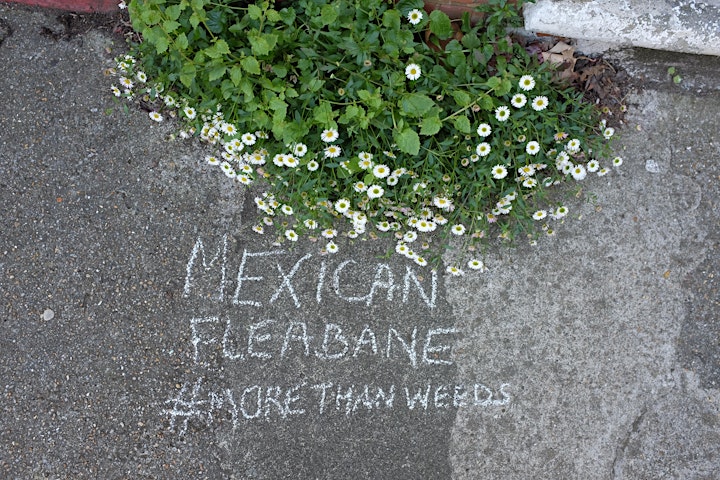 MEXICAN
FLEABANE
#MORETHANWEEDS